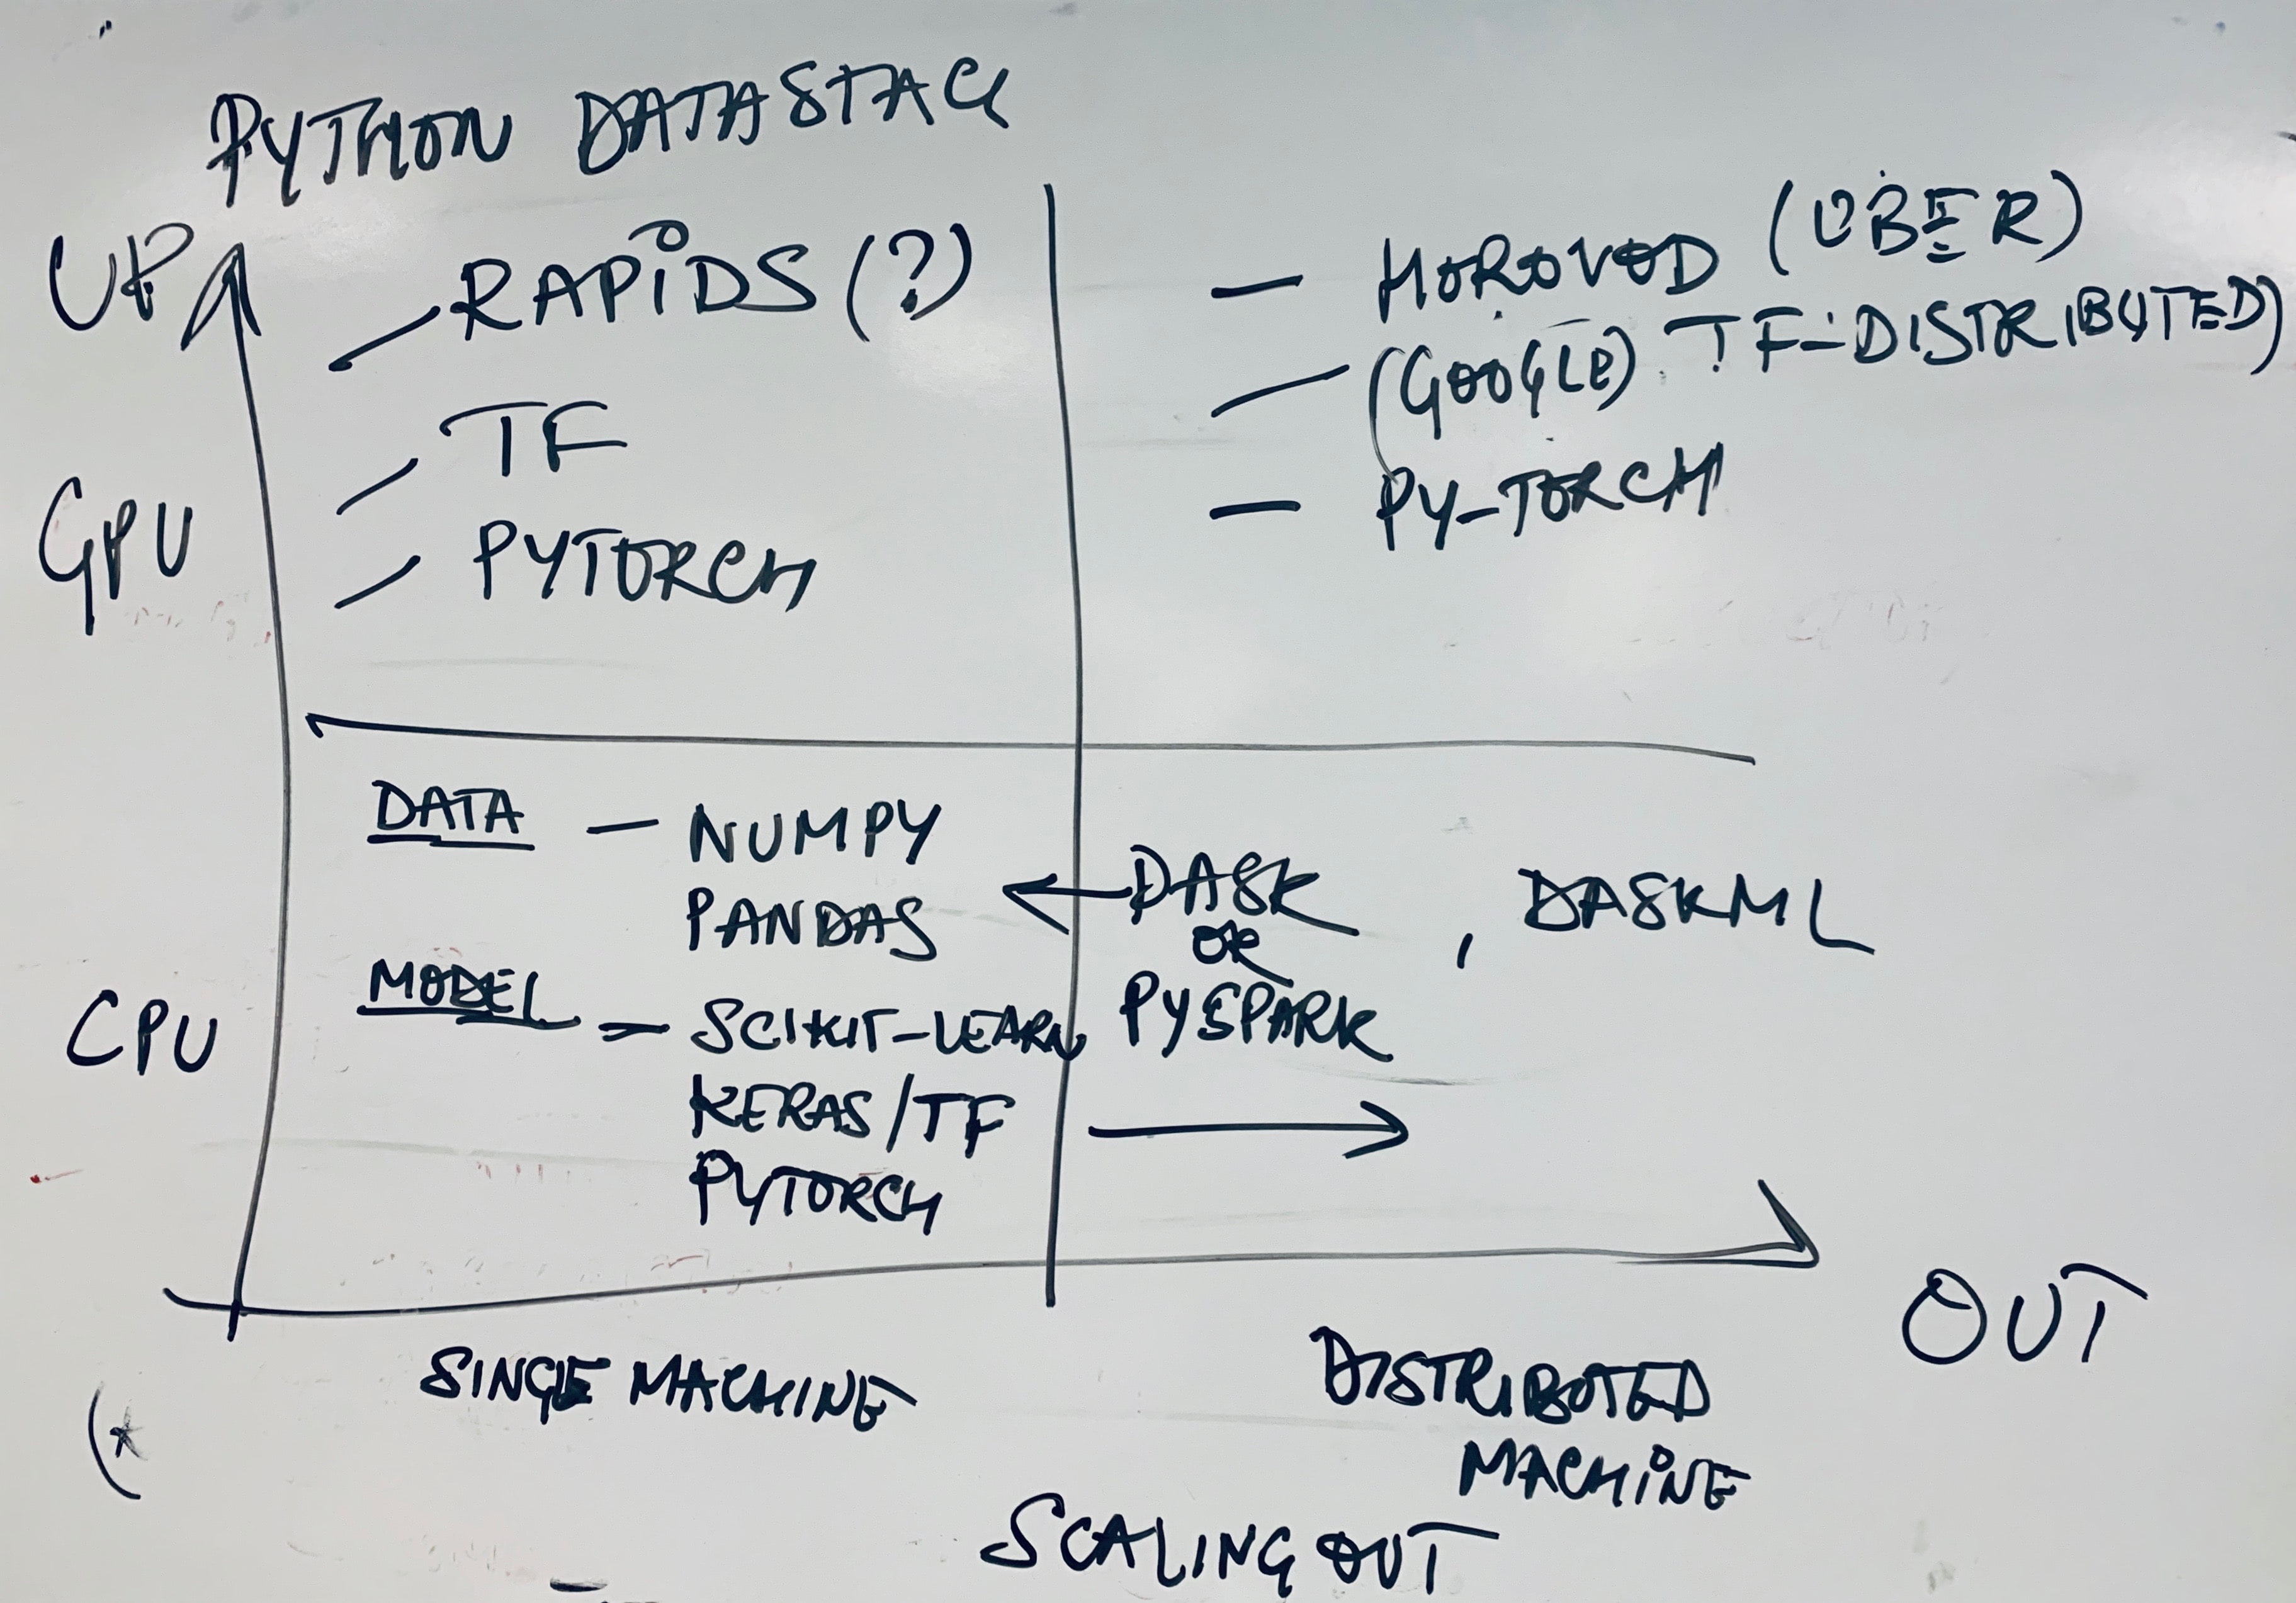 PYTHON DATASTACK
UP
RAPIDS (?)
TF
PYTORCH
GPU
HOROVOD (UBER)
(GOOGLE) TF-DISTRIBUTED)
PY-TORCH
DATA — NUMPY
PANDAS
MODEL — SCIKIT-LEARN
KERAS/TF
PYTORCH
CPU
DASK
OR
PYSPARK
, DASKML
OUT
SINGLE MACHINE
DISTRIBUTED
MACHINE
SCALING OUT
(*